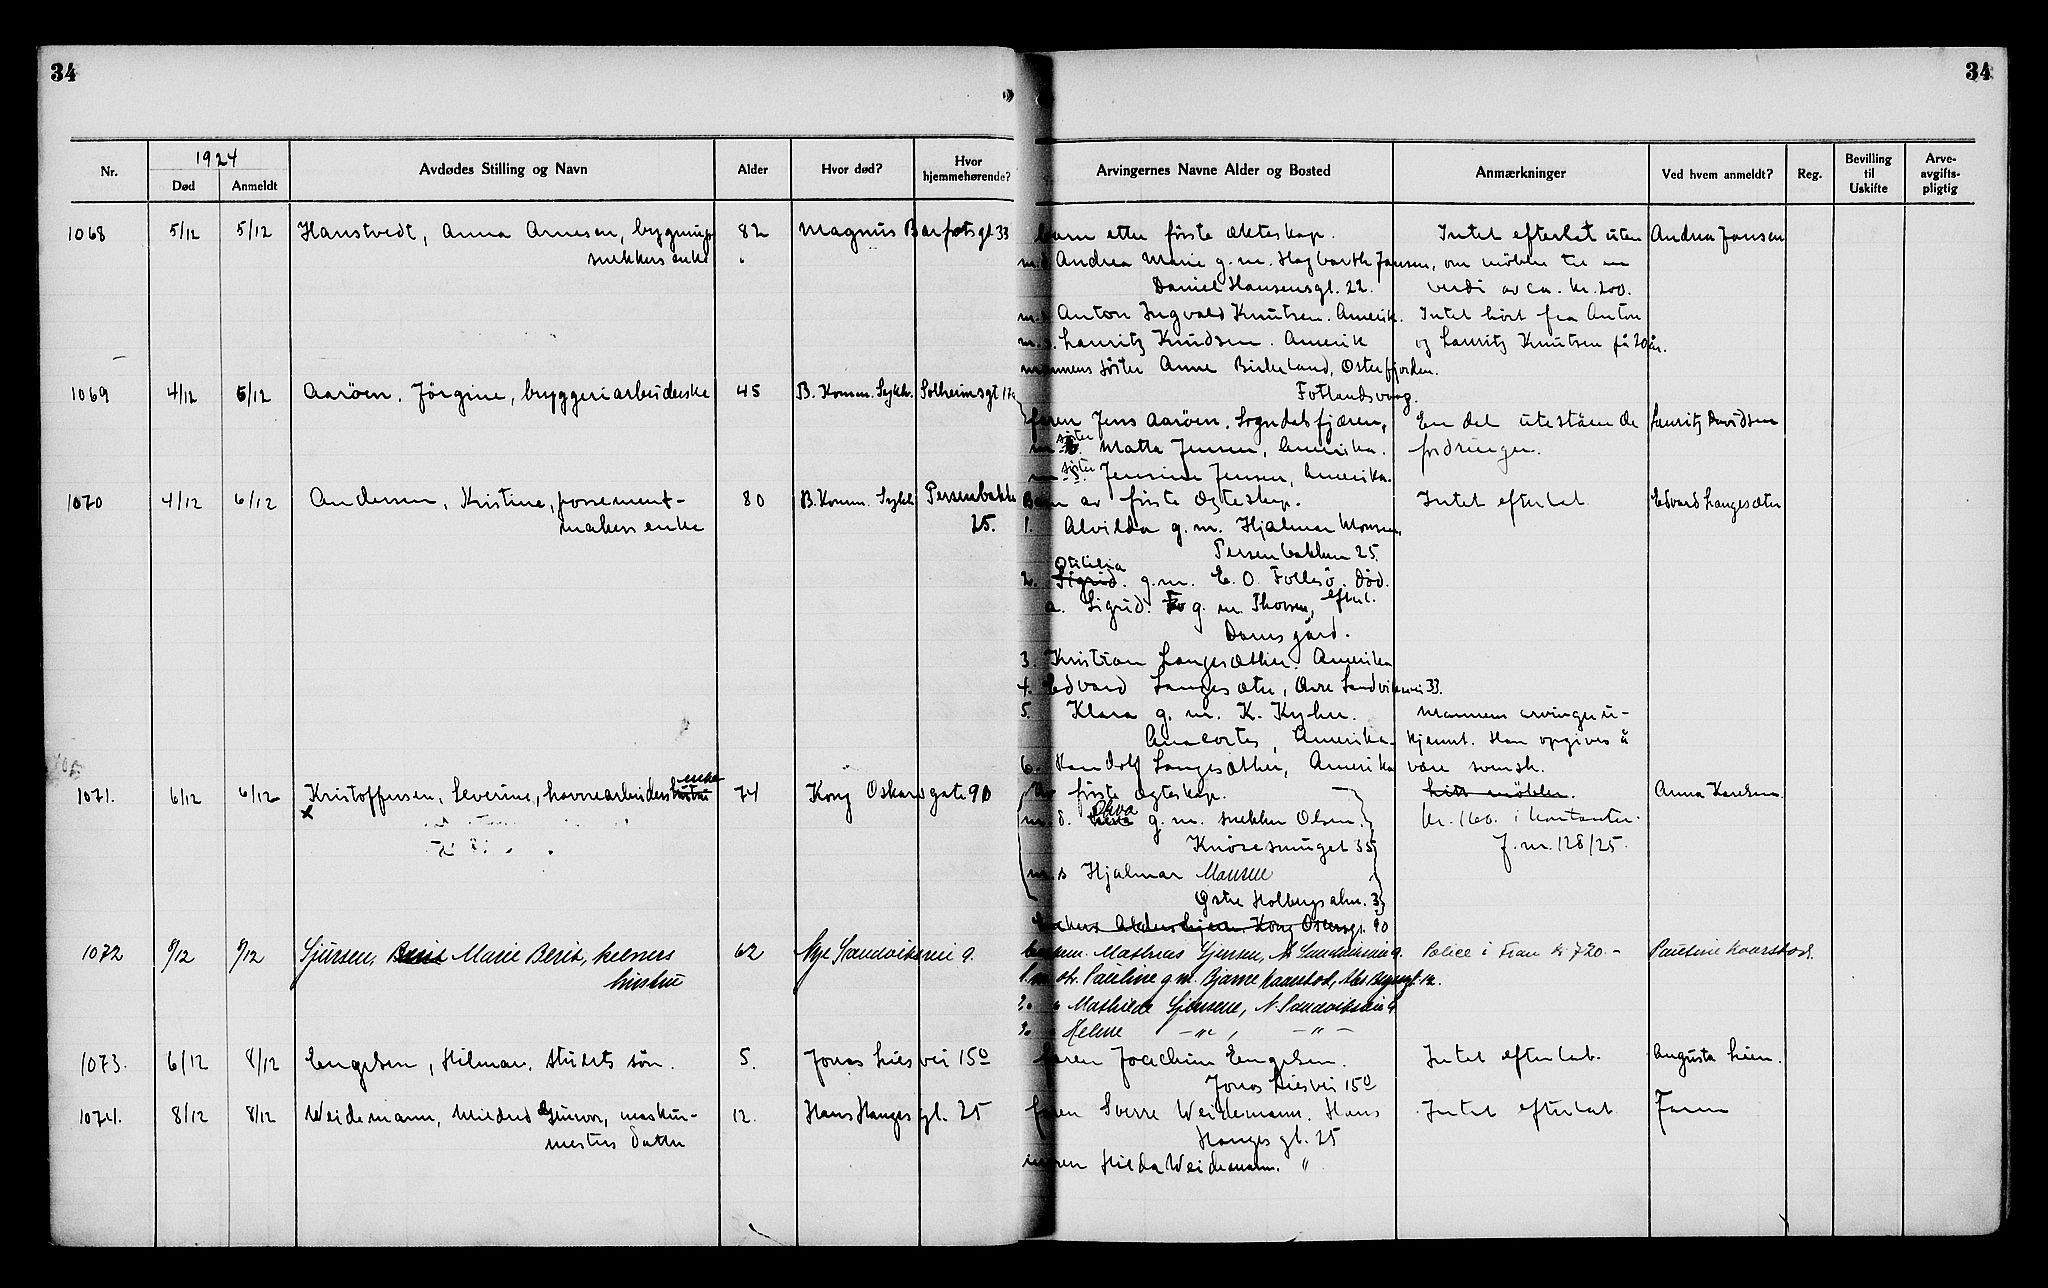 34
34
Nr.
1924
Død
Anmeldt
Avdødes Stilling og Navn
Alder
Hvor død?
Hvor hjemmehørende?
Arvingernes Navne Alder og Bosted
Anmærkninger
Ved hvem anmeldt?
Reg.
Bevilling til Uskifte
Arve-avgifts-pligtig
1068 5/12 5/12 Hanstvedt, Anna Arnesen, bygnings 82 Magnus Barfots gt 33 Barn etter første ekteskap. Intet efterlat uten Andrea Jansen
snekkers enke
Andrea Marie g. m. Hagbarth Jansen, om møbler til en
Daniel Hansensgt. 22. verdi av ca. kr. 200.
Anton Ingvald Knutsen. Amerik. Intet hørt fra Anton
m. s. Lauritz Knudsen. Amerik og Lauritz Knutsen på 20 år.
mannens søster Anne Birkeland, Osterfjorden.
Fotlandsvaag.
1069 4/12 5/12 Aarøen, Jørgine, bryggeriarbeiderske 45 B. Komm. Sykh. Solheimsgt 17a
faren Jens Aarøen. Sogndalsfjæren, En del utestående Lauritz Davidsen
søster Matta Jensen, Amerika. fordringer.
søster Jensine Jensen, Amerika.
1070 4/12 6/12 Andersen, Kristine, possement- 80 B. Komm. Sykh Persenbakke Barn av første egteskap. Intet efterlat. Edvard Langesæter
makers enke 25. 1. Alvilda g. m. Hjalmar Monsen,
Persenbakken 25.
2. Otilia Sigrid. g. m. E. O. Follesø. død.
a. Sigrid. g. m. Thorsen, efterl.
Damsgård.
3. Kristian Langesæther. Amerika
4. Edvard Langesæter, Øvre Sandviksvei 33.
5. Klara g. m. K. Kyhn. Mannens arvinger u-
Anacortes, Amerika. kjennt. Han opgives å
6. Randolf Langesæther, Amerika være svensk.
1071. 6/12 6/12 Kristoffersen, Severine, havnearbeiders enke hustru 74 Kong Oskars gate 90 Av første egteskap. litt møbler. Anna Karlsen
x m. d. Olva g. m. snekker Olsen. kr. 160. i kontanter.
Knøsesmuget 35 J. nr. 128/25.
m. s Hjalmar Monsen
Østre Holbergsalm. 3
Enkens Aldershjem. Kong Oscarsgt. 90
1072 8/12 9/12 Sjursen, Berit Marie Berit, kelners 62 Nye Sandviksvei 9. Mathias Sjursen, N. Sandviksvei 9. Police i Fram kr 720.- Pauline Kaarstad.
hustru 1. Pauline g. m. Bjarne Kaarstad, 12.
2. Mathilde Sjursen, N. Sandviksvei 9
3. Helene - " - , - " -
1073. 6/12 8/12 Engelsen, Hilmar, stuerts søn. 5. Jonas Lies vei 15c Faren Joachim Engelsen. Intet efterlat. Augusta Lien.
Jonas Liesvei 15c
1074. 8/12 8/12 Weidemann, Mildred Gunvor, maskin- 12. Hans Hauges gt. 25 faren Sverre Weidemann. Hans Intet efterlat Faren
mesters datter Hauges gt. 25
moren Hilda Weidemann. "